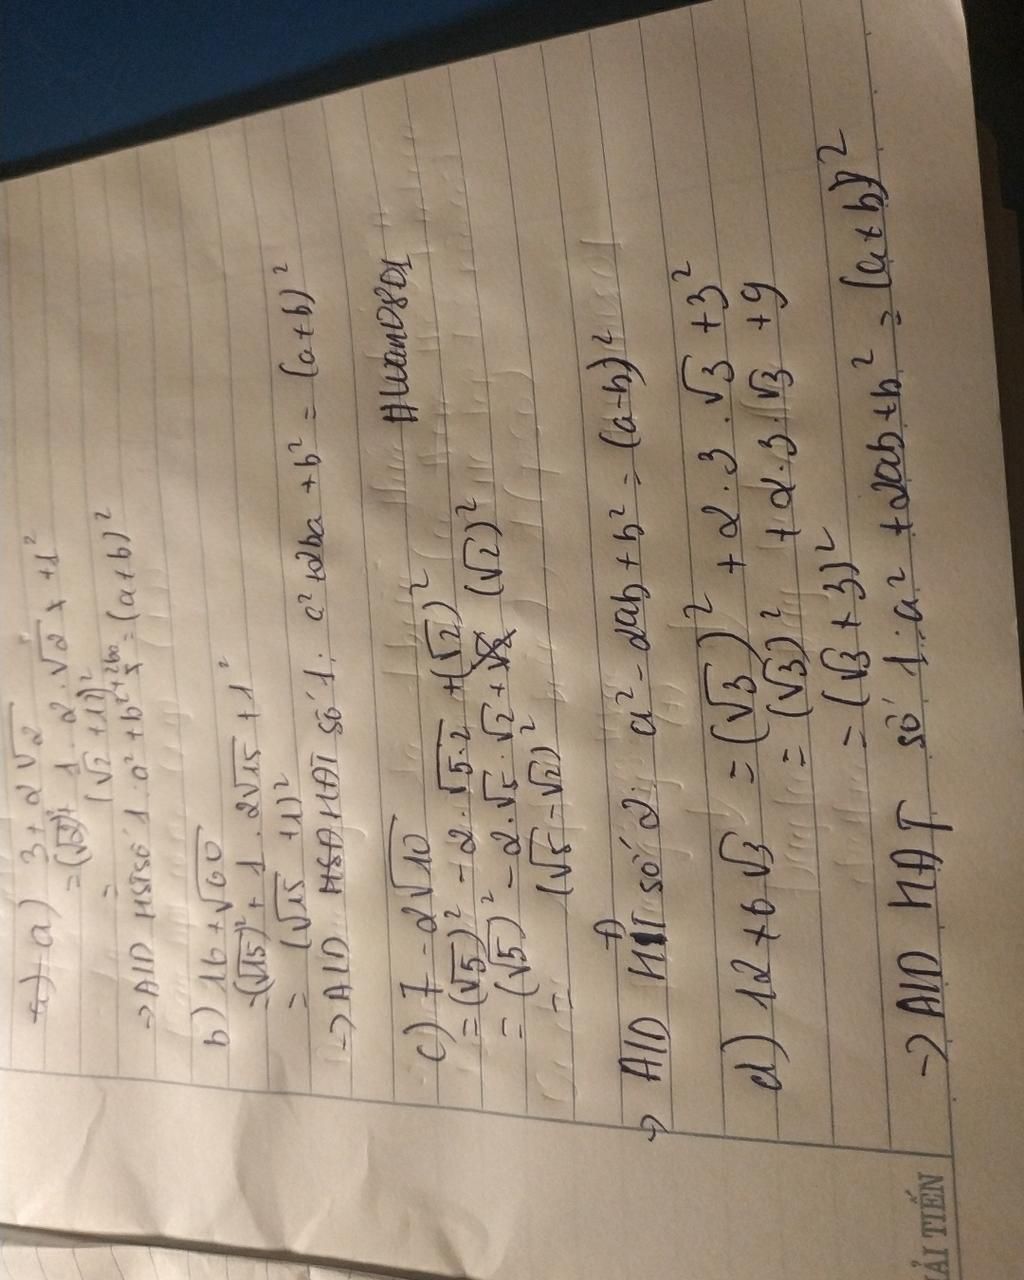 a) 3 + 2√2
= (√2)² + 1 . 2 . √2 + 1²
= (√2 + 1)²
→ AID số 1 . a² + b² + 2ba = (a+b)²
b) 16 + √60
= (√15)² + 1 . 2√15 + 1²
= (√15 + 1)²
→ AID HAT số 1 : a² + 2ba + b² = (a+b)²
c) 7 - 2√10
= (√5)² - 2 . √5.2 + (√2)²
= (√5)² - 2.√5 . √2 + (√2)²
= (√5 - √2)²
→ AID số 2 a² - 2ab + b² = (a-b)²
d) 12 + 6√3 = (√3)² + 2 . 3 . √3 + 3²
= (√3)² + 2.3.√3 + 9
= (√3 + 3)²
→ AID HAT số 1 : a² + 2ab + b² = (a+b)²
ẢI TIẾN